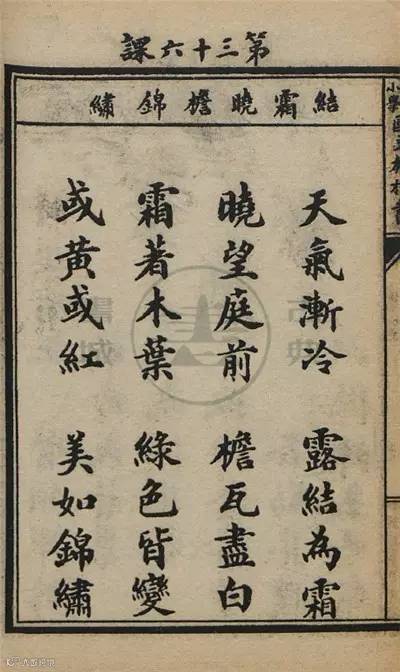 第三十六課
結霜曉檐錦繡
天氣漸冷 露結為霜
曉望庭前 檐瓦盡白
霜著木葉 綠色皆變
或黃或紅 美如錦繡